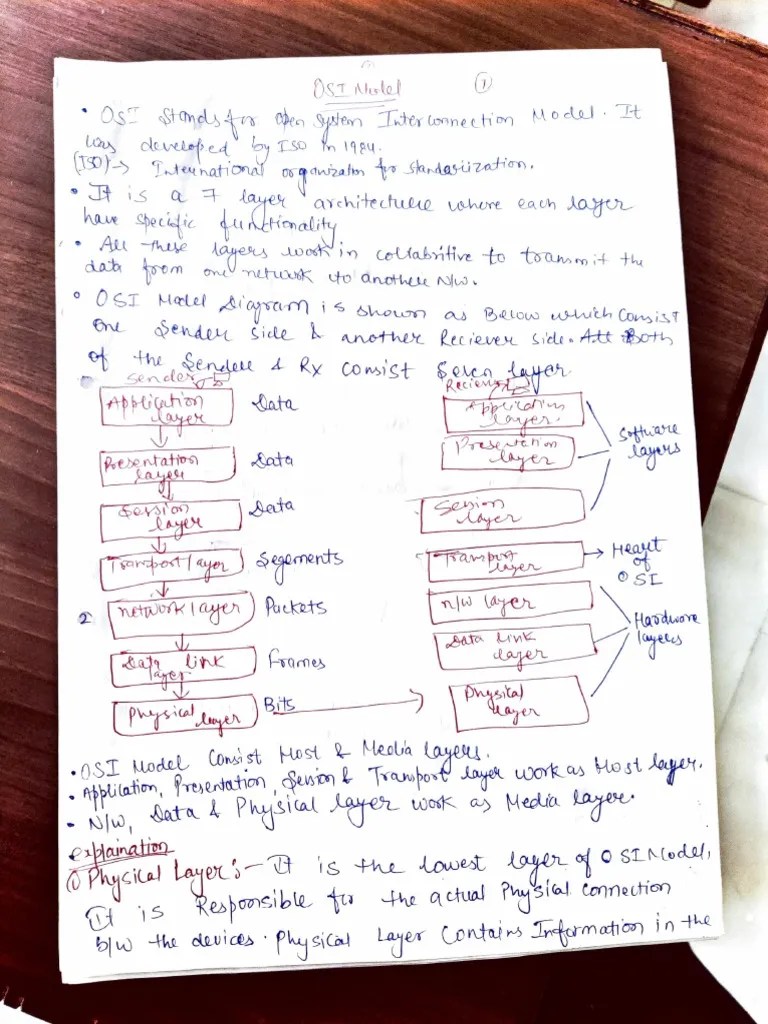 OSI Model ①
• OSI stands for open system Interconnection Model. It
was developed by ISO in 1984.
(ISO) → International organization for standarization.
• It is a 7 layer architecture where each layer
have specific functionality
• All these layers work in collabritive to transmit the
data from one network to another N/w.
• OSI Model Diagram is shown as Below which Consist
one Sender side & another Reciever side. All Both
of the Sender & Rx consist Seven layer.
Sender Reciever
Application layer Data Application layer.
Presentation layer Data Presentation layer Software layers
Session layer Data Session layer
Transport layer Segements Transport layer → Heart of OSI
2 network layer Packets n/w layer
Data link layer Frames Data link layer Hardware layers
Physical layer Bits → Physical layer
• OSI Model Consist Host & Media layers.
• Application, Presentation, Session & Transport layer work as Host layer.
• N/w, Data & Physical layer work as Media layer.
explaination
① Physical Layer :- It is the lowest layer of OSI Model,
It is Responsible for the actual Physical connection
b/w the devices. Physical Layer Contains Information in the